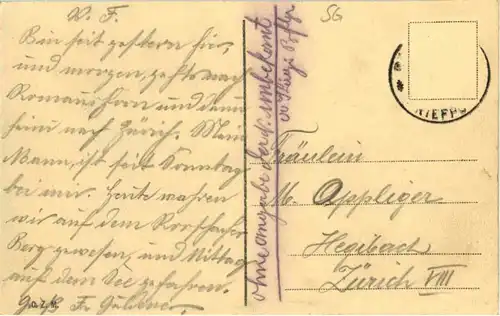 W. F.
Bin seit gestern hier,
und morgen gehts nach
Romanshorn und dann
heim nach Zürich. Mein
Mann, ist seit Sonntag
bei mir. Heute waren
wir auf dem Rorschacher
Berg gewesen, und Mittag
auf dem See gefahren.
Gruss Fr.
56
ohne angabe der unbekant
Fräulein
M. Appliger
Hegibach
Zürich VIII
IEFP